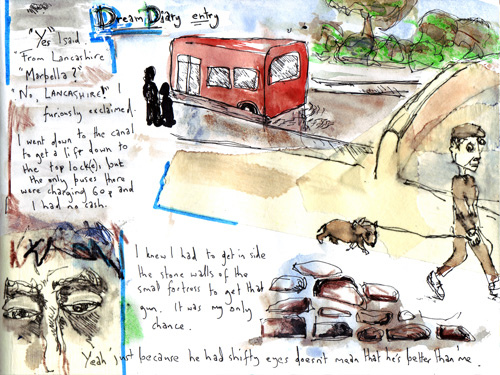 Dream Diary entry
"Yes" I said.
"From Lancashire
"Marbella?"
"No, LANCASHIRE!" I
furiously exclaimed.
I went down to the canal
to get a lift down to
the top lock(e), but
the only buses there
were charging 60p and
I had no cash.
I knew I had to get in side
the stone walls of the
small fortress to get that
gun. It was my only
chance.
Yeah 'just because he had shifty eyes doesn't mean that he's better than me.